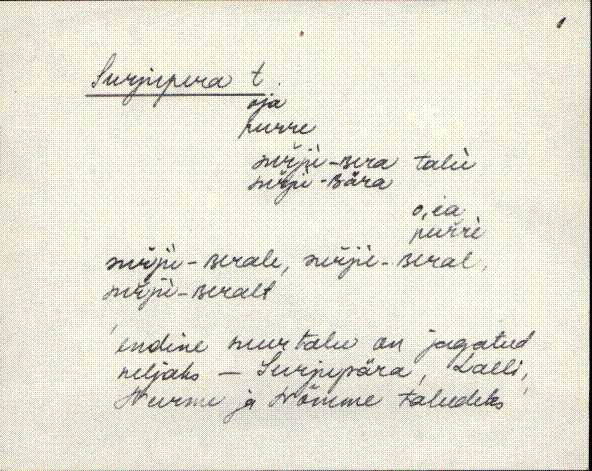 Surjupera t.
oja
purre
suřjù-ʙera talù
suřjù-ʙära
o͔i̯a
puřrè
suřjù-ʙerale, suřjù-ʙeral,
suřjù-ʙeralt
'endine suurtalu on jagatud
neljaks — Surjupära, Lalli,
Nurme ja Nõmme taludeks'